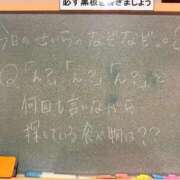 必ず黒板を書きましょう
今日のさいらのなぞなぞ。
Q「ん?」「ん?」「ん?」と
何回も言いながら
探している食べ物は??